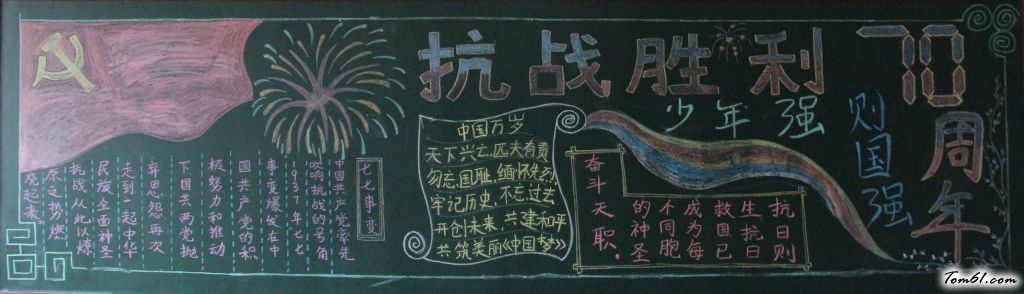 抗战胜利70
周年
少年强
则国强
七七事变
中国共产党率先
吹响抗战的号角
1937年七七
事变爆发在中
国共产党的积
极努力和推动
下国共两党抛
弃恩怨再次
走到一起中华
民族全面神圣
抗战从此以燎
原之势燃
烧起来
中国万岁
天下兴亡,匹夫有责
勿忘,国耻,缅怀先烈
牢记历史,不忘,过去
开创未来,共建和平
共筑美丽《中国梦》
抗日则
生抗日
救国已
成为每
个同胞
的神圣
天职。
奋斗
Tom61.com